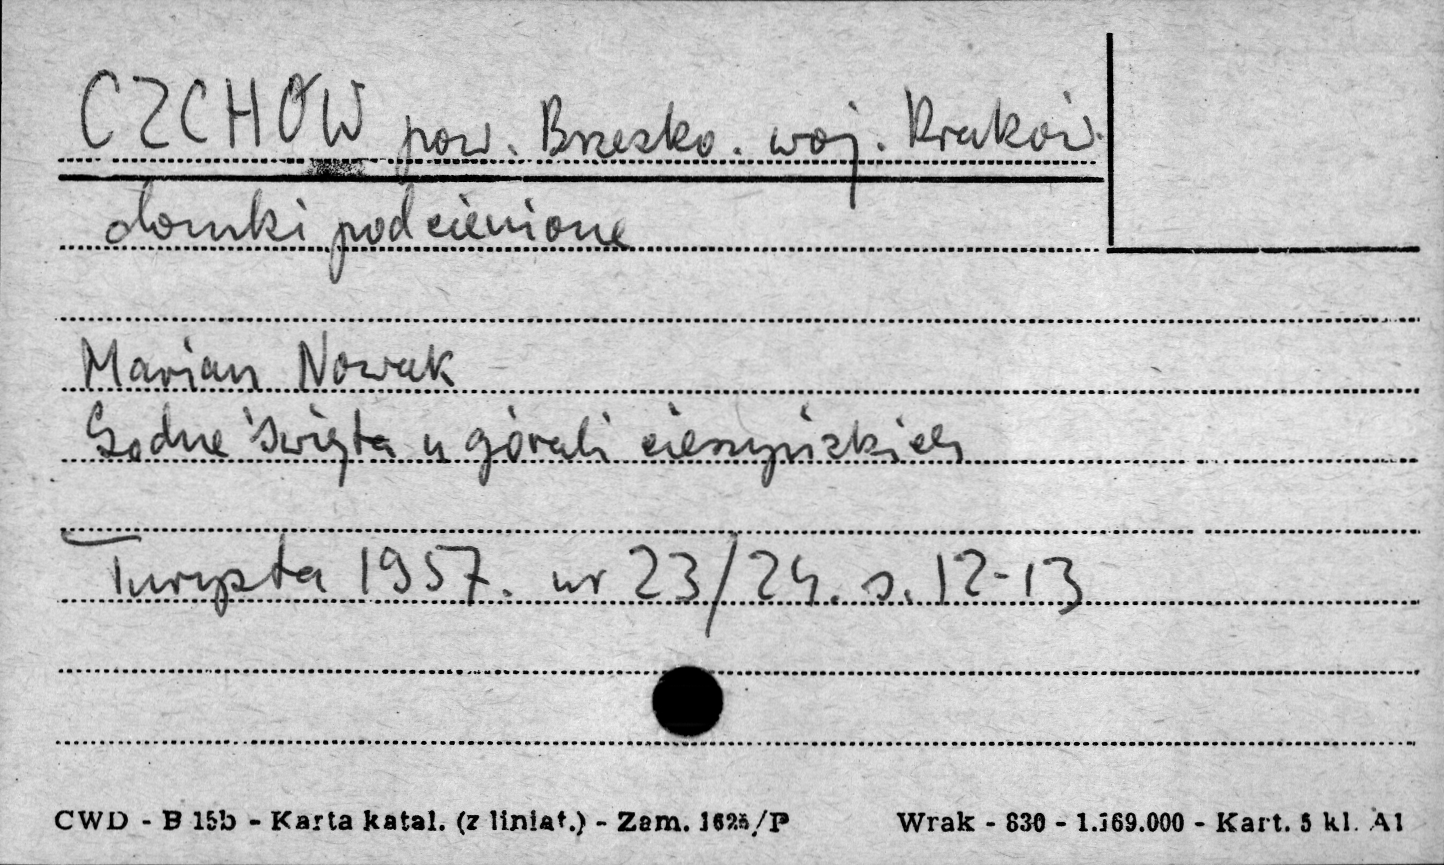 CZCHÓW pow. Brzesko. woj. Kraków.
domki podcienione
Marian Nowak
Godne Święta u górali cieszyńskich
Turysta 1957. nr 23/24. s. 12-13
CWD - B 15b - Karta katal. (z liniat.) - Zam. 1625/P Wrak - 830 - 1.169.000 - Kart. 5 kl. A1